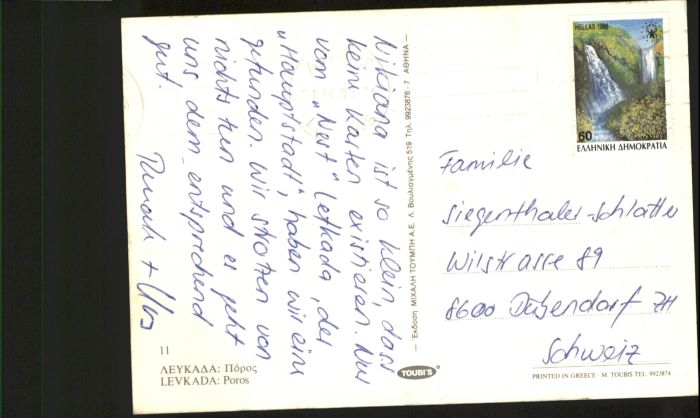 Nikiana ist so klein, dass
keine Karten existieren. Nur
vom „Nest“ Lefkada, der
„Hauptstadt“, haben wir eine
gefunden. Wir strotzen von
nichts tun und es geht
uns dem entsprechend
gut.
11
ΛΕΥΚΑΔΑ: Πόρος
LEVKADA: Poros
— Έκδοση ΜΙΧΑΛΗ ΤΟΥΜΠΗ Α.Ε. Λ. Βουλιαγμένης 519 Τηλ. 9923876-7 ΑΘΗΝΑ —
TOUBI'S
HELLAS 1988
60
ΕΛΛΗΝΙΚΗ ΔΗΜΟΚΡΑΤΙΑ
Familie
Siegenthaler-Schlatter
Wilstrasse 89
8600 Dübendorf ZH
Schweiz
PRINTED IN GREECE · M. TOUBIS TEL. 9923874